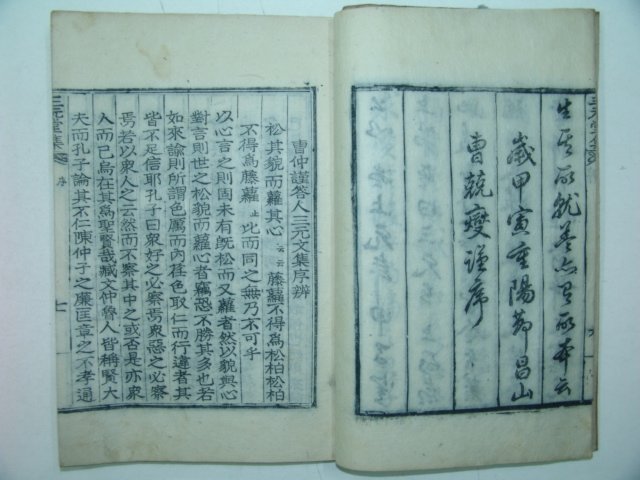 生□所就蓋亦有所本云
歲甲寅重陽節昌山
曹兢燮謹序
曹仲謹答人三元文集序辨
松其貌而蘿其心云云藤蘿不得爲松柏松柏
不得爲藤蘿止此而同之無乃不可乎
以心言之則固未有旣松而又蘿者然以貌與心
對言則世之松貌而蘿心者竊恐不勝其多也若
如來諭則所謂色厲而內荏色取仁而行違者其
皆不足信耶孔子曰衆好之必察焉衆惡之必察
焉若以衆人之云然而不察其中之或否是亦衆
人而已烏在其爲聖賢哉臧文仲魯人皆稱賢大
夫而孔子論其不仁陳仲子之廉匡章之不孝通
三元堂集
序
七